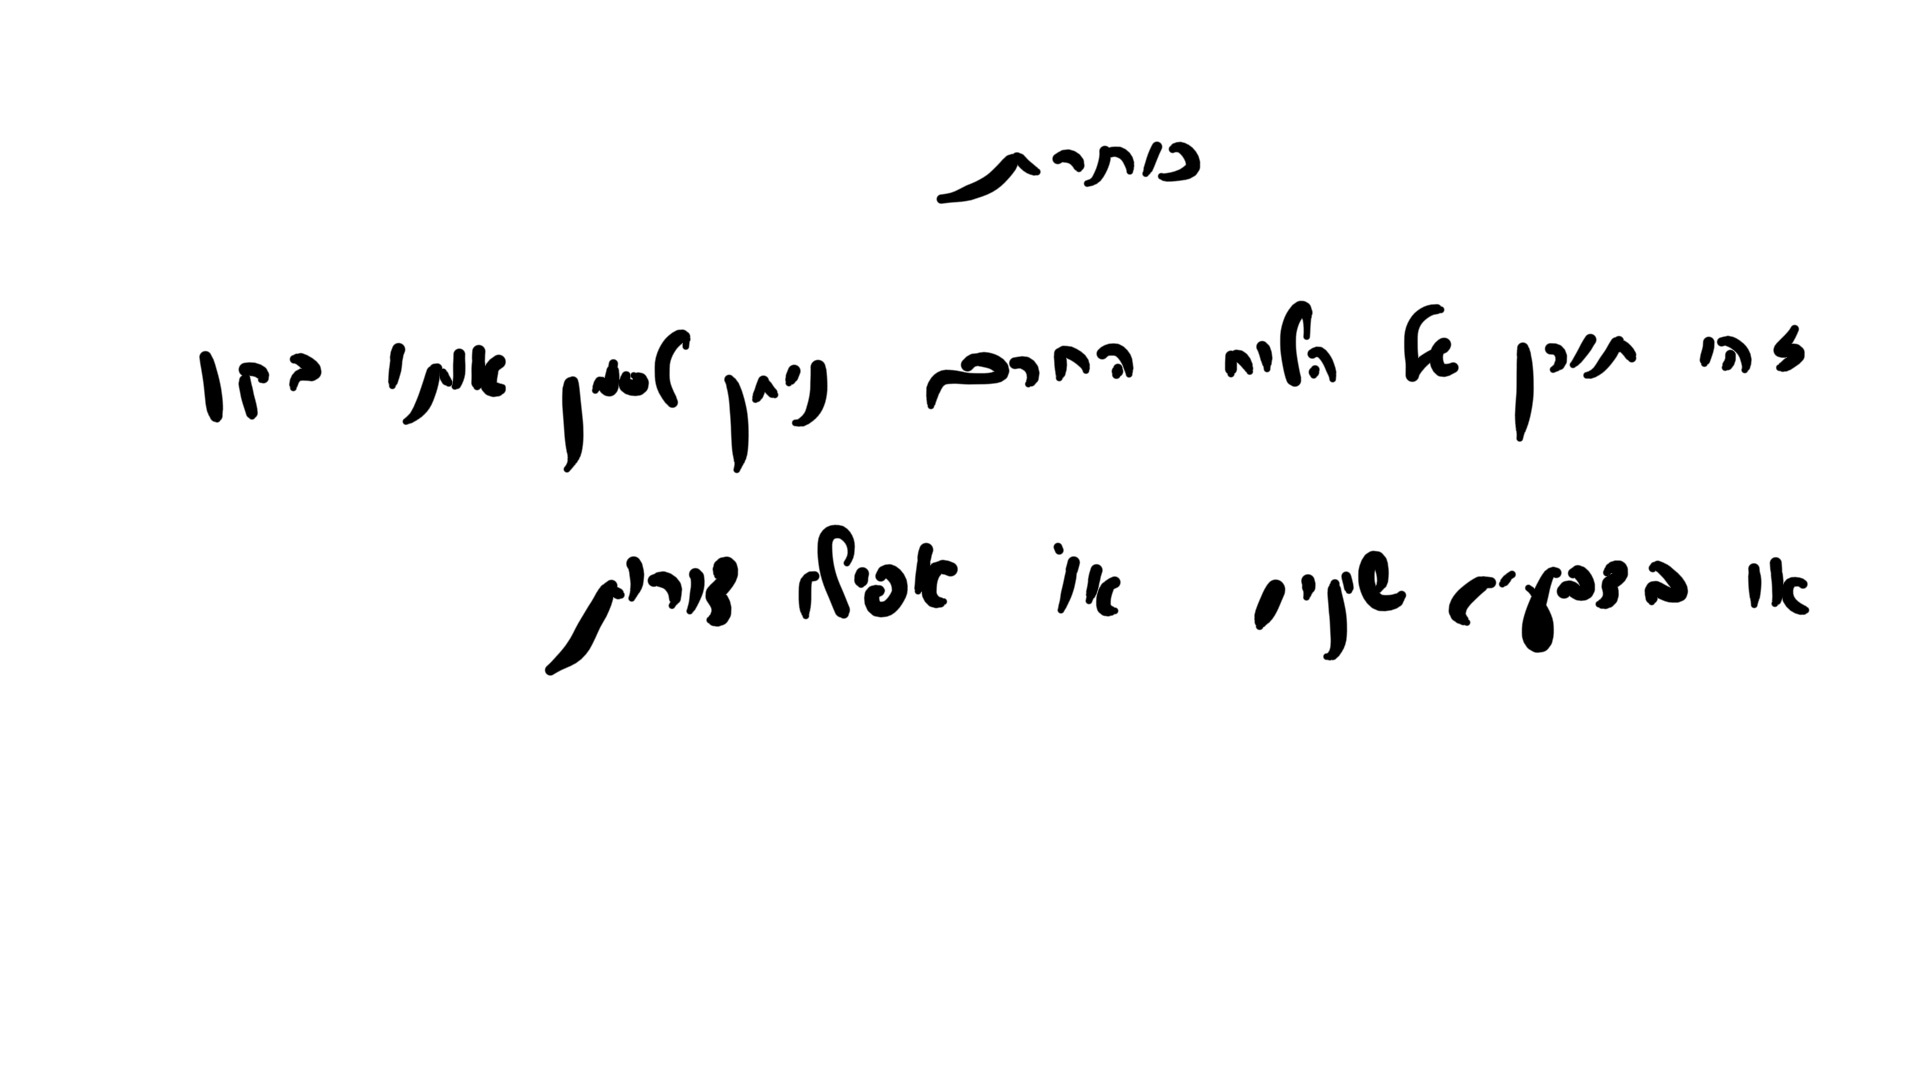 כותרת
זהו תוכן על הלוח החכם ניתן לסמן אותו בקו
או בצבעים שונים או אפילו צורות